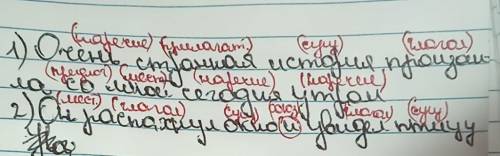 (наречие) (прилагат.) (сущ) (глагол)
1) Очень странная история произош
(предлог) (мест.) (наречие) (наречие)
ла со мной сегодня утром
(мест.) (глагол) (сущ) союз (глагол) (сущ)
2) Он распахнул окно и увидел птицу